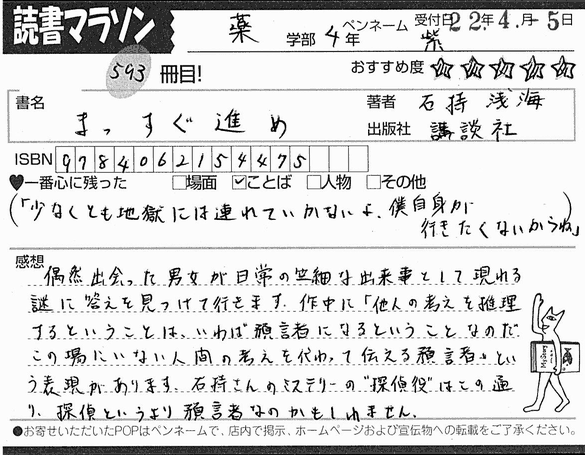 読書マラソン
薬 学部 4年 ペンネーム 紫 受付日 22年4月-5日
593 冊目!
おすすめ度 ☆☆☆☆☆
書名 まっすぐ進め
著者 石持 浅海
出版社 講談社
ISBN 9784062154475
♥一番心に残った □場面 ☑ことば □人物 □その他
(「少なくとも地獄には連れていかないよ、僕自身が
行きたくないからね」)
感想
偶然出会った男女が日常の些細な出来事として現れる
謎に答えを見つけて行きます。作中に「他人の考えを推理
するということは、いわば預言者になるということなのだ
この場にいない人間の考えを代わって伝える預言者」とい
う表現があります。石持さんのミステリーの"探偵役"はこの通
り、探偵というより預言者なのかもしれません。
Mystery
●お寄せいただいたPOPはペンネームで、店内で掲示、ホームページおよび宣伝物への転載をご了承ください。